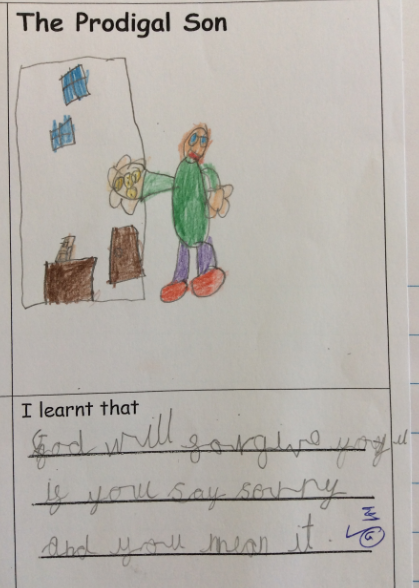 The Prodigal Son
I learnt that
God will forgive you
if you say sorry
and you mean it.